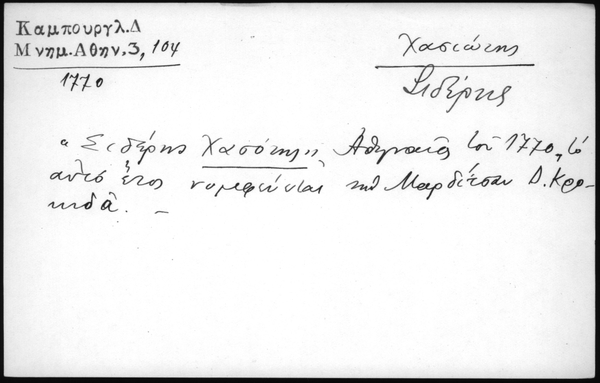 Καμπουργλ.Δ
Μνημ.Αθην.3, 104
1770
Χασιώτης
Σιδέρης
"Σιδέρης Χασιότης" Ἀθηναῖος τοῦ 1770, τό
αὐτό ἔτος νυμφεύεται τήν Μαρδίτσαν Δ. Κρο-
κιδᾶ. –